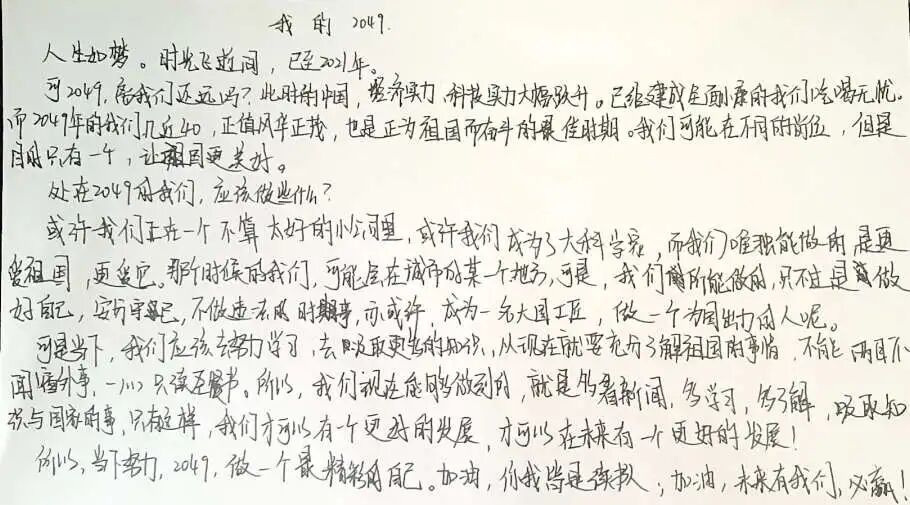 我的 2049.
人生如梦。时光飞逝间，已至2021年。
可2049，离我们还远吗？此时的中国，经济实力，科技实力大幅跃升。已经建成全面小康的我们吃喝无忧。
而2049年的我们几近40，正值风华正茂，也是正为祖国而奋斗的最佳时期。我们可能在不同的岗位，但是
目的只有一个，让祖国更美好。
处在2049的我们，应该做些什么？
或许我们正在一个不算太好的小公司里，或许我们成为了大科学家，而我们唯独能做的是更
爱祖国，更爱它。那个时候的我们，可能会在城市的某一个地方，可是，我们所能做的，只不过是做
好自己，安分守己，不做违法的事，亦或许，成为一名大国工匠，做一个为国出力的人呢。
可是当下，我们应该去努力学习，去吸取更多的知识，从现在就要充分了解祖国的事情，不能两耳不
闻窗外事，一心只读圣贤书。所以，我们现在能够做到的，就是多看新闻，多学习，多了解，吸取知
识与国家的事，只有这样，我们才可以有一个更好的发展，才可以在未来有一个更好的发展！
所以，当下努力，2049，做一个最精彩的自己。加油，你我皆是；加油，未来有我们，必赢！